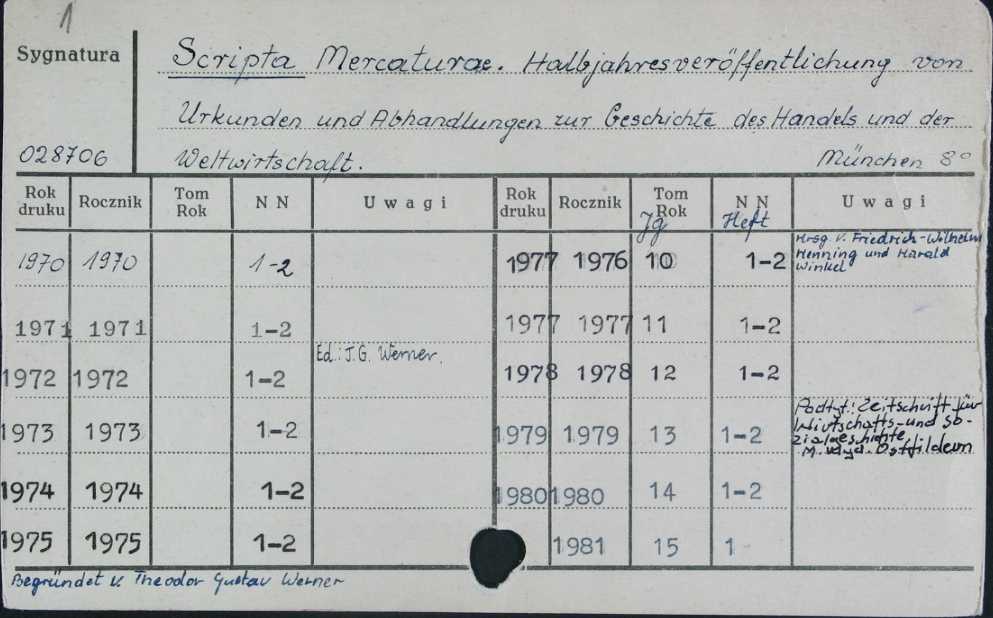 1
Sygnatura
Scripta Mercaturae. Halbjahresveröffentlichung von
Urkunden und Abhandlungen zur Geschichte des Handels und der
028706 Weltwirtschaft. München 8°
Rok druku Rocznik Tom Rok N N Uwagi Rok druku Rocznik Tom Rok N N Uwagi
Jg Heft
1970 1970 1-2
1971 1971 1-2
Ed.: T.G. Werner.
1972 1972 1-2
1973 1973 1-2
1974 1974 1-2
1975 1975 1-2
1977 1976 10 1-2
Hrsg. v. Friedrich-Wilhelm
Henning und Harald
Winkel
1977 1977 11 1-2
1978 1978 12 1-2
1979 1979 13 1-2
Podtyt.: Zeitschrift für
Wirtschafts- und So-
zialgeschichte
M. wyd. Ostfildern
1980 1980 14 1-2
1981 15 1
Begründet v. Theodor Gustav Werner